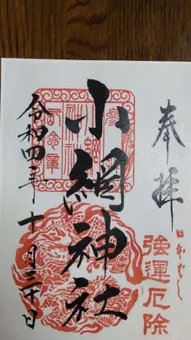 奉拝
日本ばし
強運厄除
小網神社
令和四年十一月二十日